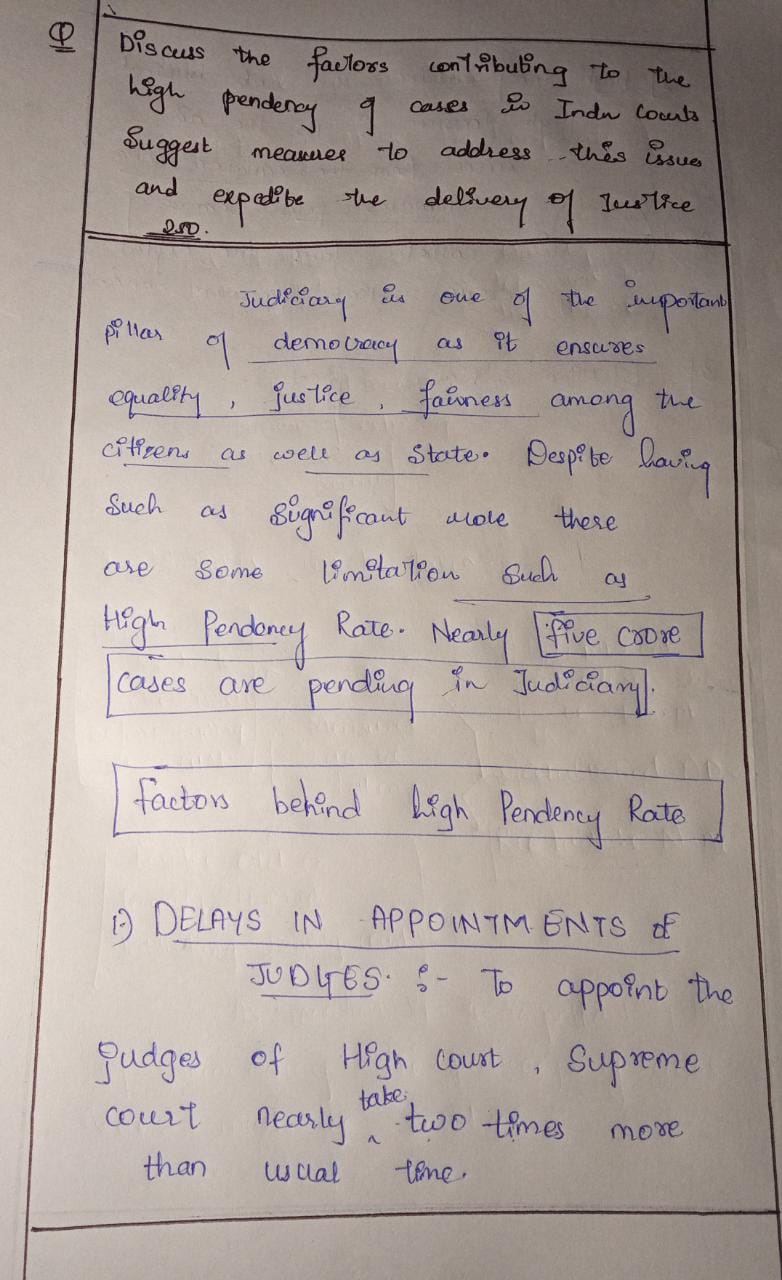 Q
Discuss the factors contributing to the
high pendency of cases in India courts
Suggest measures to address this issue
and expedite the delivery of Justice
250.
Judiciary is one of the important
pillar of democracy as it ensures
equality, justice, fairness among the
citizens as well as State. Despite having
such as significant role there
are some limitation such as
High Pendency Rate. Nearly five crore
cases are pending in Judiciary.
factors behind high Pendency Rate
1) DELAYS IN APPOINTMENTS of
JUDGES. :- To appoint the
judges of High court, Supreme
court nearly take two times more
than usual time.